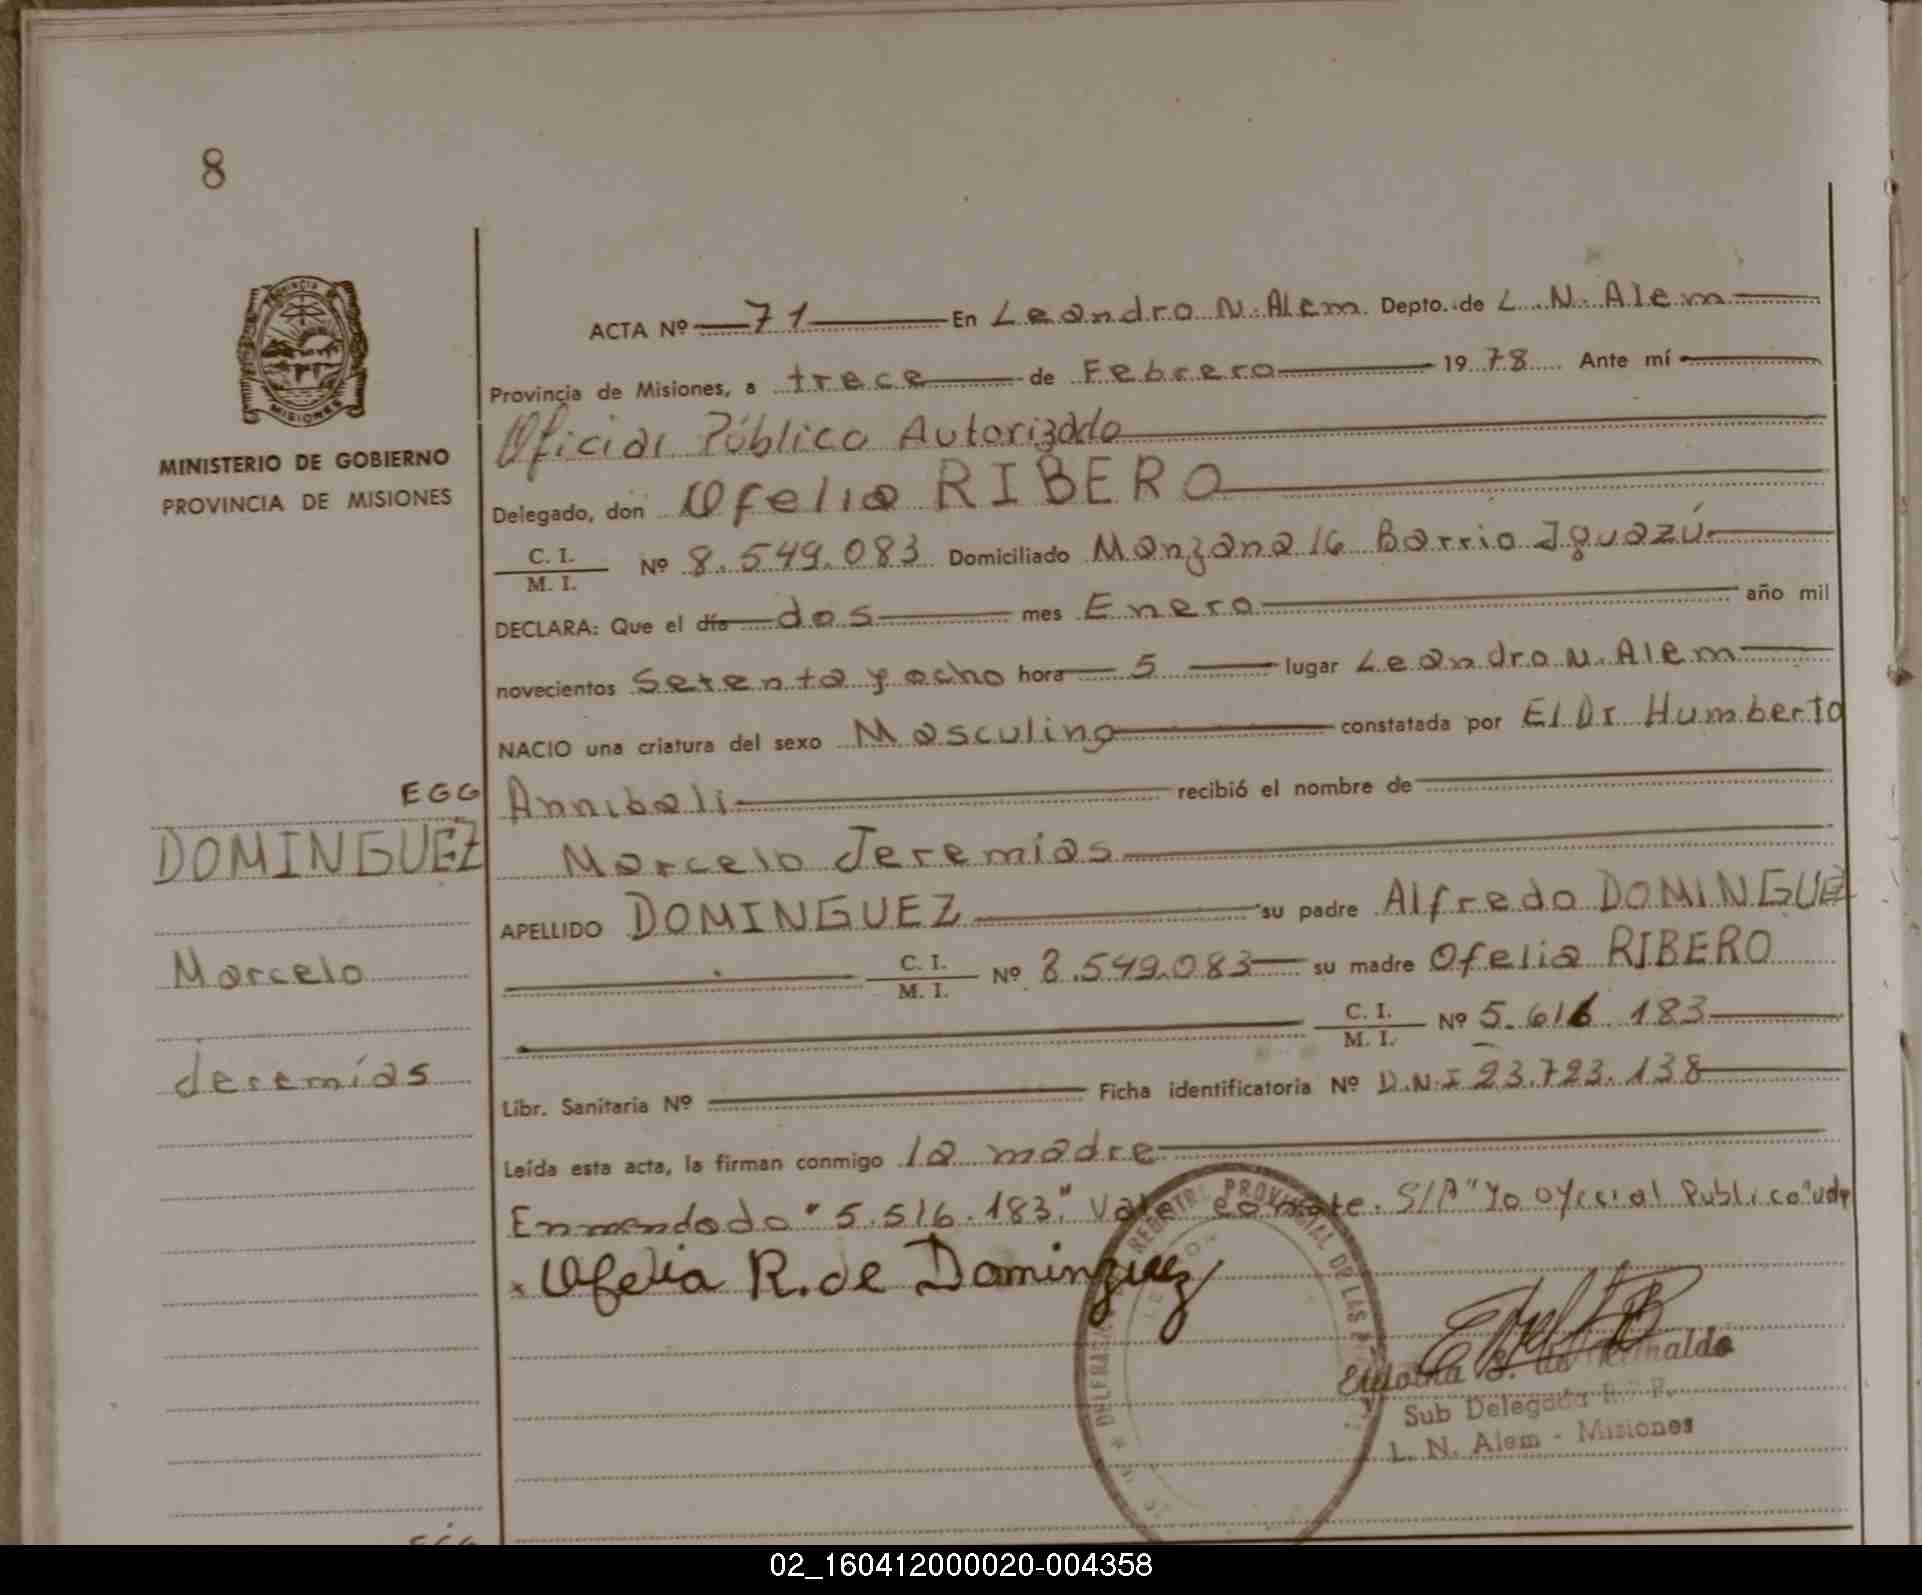 8
PROVINCIA DE
MISIONES
MINISTERIO DE GOBIERNO
PROVINCIA DE MISIONES
EGG
DOMINGUEZ
Marcelo
Jeremías
ACTA Nº 71 En Leandro N. Alem. Depto. de L. N. Alem
Provincia de Misiones, a trece de Febrero 1978 Ante mí
Oficial Público Autorizado
Delegado, don Ofelia RIBERO
C. I.
M. I. Nº 8.549.083 Domiciliado Manzana 16 Barrio Iguazú
DECLARA: Que el día dos mes Enero año mil
novecientos Setenta y ocho hora 5 lugar Leandro N. Alem
NACIO una criatura del sexo Masculino constatada por El Dr Humberto
Annibali recibió el nombre de
Marcelo Jeremias
APELLIDO DOMINGUEZ su padre Alfredo DOMINGUEZ
C. I.
M. I. Nº 8.549.083 su madre Ofelia RIBERO
C. I.
M. I. Nº 5.616.183
Libr. Sanitaria Nº Ficha identificatoria Nº D.N.I 23.723.138
Leída esta acta, la firman conmigo la madre
Enmendado "5.516.183." Vale conste. S/A "Yo Oficial Publico"
Ofelia R. de Dominguez
REGISTRAL PROVINCIAL DE LAS
S. de Reinaldo
Sub Delegada R. P.
L. N. Alem - Misiones
02_160412000020-004358